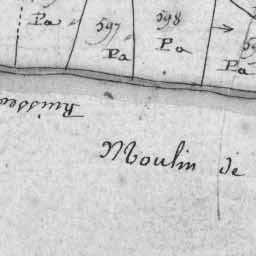 Pa
597
Pa
598
Pa
Pa
Ruisseau
Moulin de